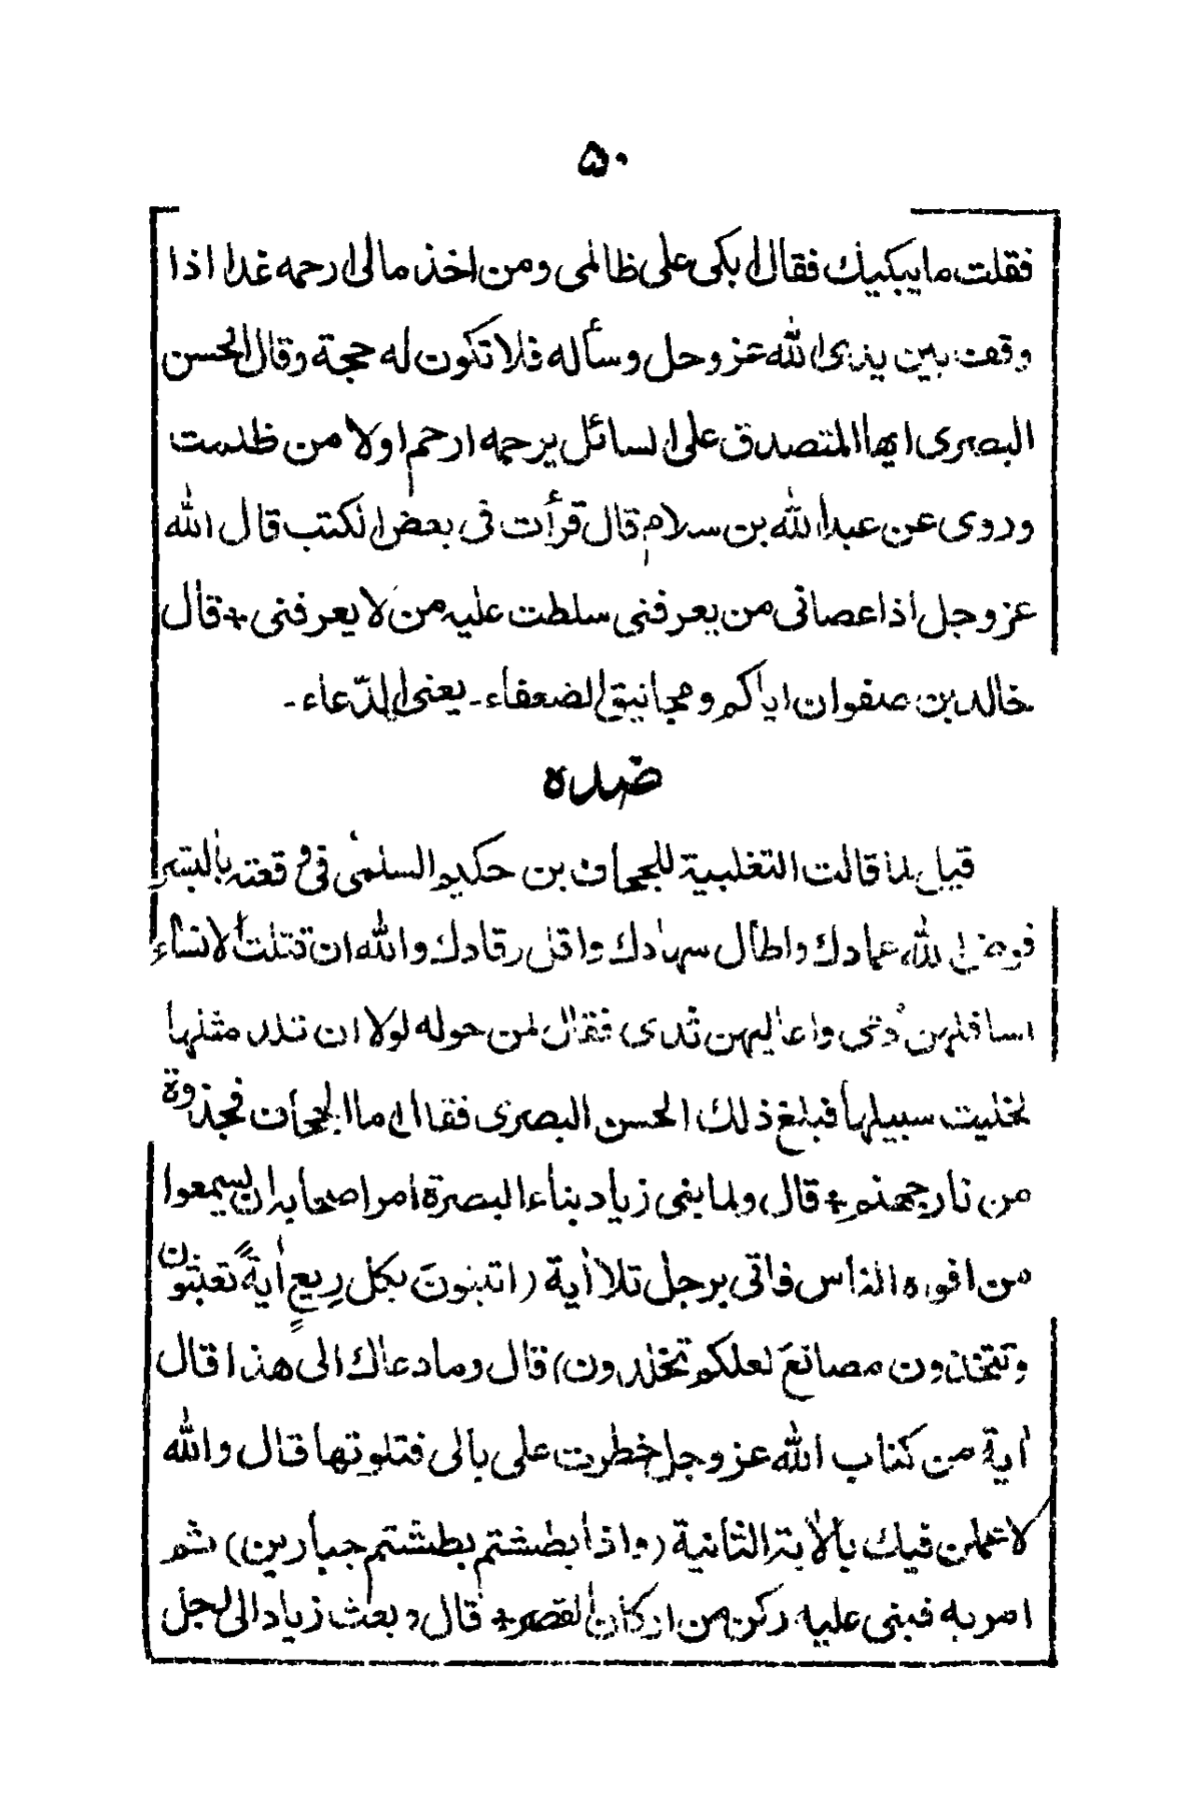 ۵۰
فقلت ما يبكيك فقال ابكى على ظالمى ومن اخذ مالى ارحمه غدا اذا
وقف بين يدى الله عز وجل وسأله فلا تكون له حجة وقال الحسن
البصرى ايها المتصدق على السائل يرحمه ارحم اولا من ظلمت
وروى عن عبد الله بن سلام قال قرأت فى بعض الكتب قال الله
عز وجل اذا عصانى من يعرفنى سلطت عليه من لا يعرفنى + قال
خالد بن صفوان اياكم ومجانيق الضعفاء - يعنى الدّعاء -
ضده
قيل لما قالت التغلبية للجحاف بن حكيم السلمى فى وقعته بالبشر
فوض الله عمادك واطال سهادك واقل رقادك والله ان قتلت الا نساء
اسافلهن دمى واعاليهن ثدى فقال لمن حوله لولا ان تلد مثلها
لخليت سبيلها فبلغ ذلك الحسن البصرى فقال اما الجحاف فجذوة
من نار جهنم + قال ولما بنى زياد بناء البصرة امر اصحابه ان يسمعوا
من افواه الناس فاتى برجل تلا أية (اتبنون بكل رِيعٍ أيةً تعبثون
وتتخذون مصانعَ لعلكم تخلدون) قال وما دعاك الى هذا قال
أية من كتاب الله عز وجل خطرت على بالى فتلوتها قال والله
لاعملن فيك بالأية الثانية (واذا بطشتم بطشتم جبارين) ثم
امر به فبنى عليه ركن من اركان القصر + قال وبعث زياد الى رجل